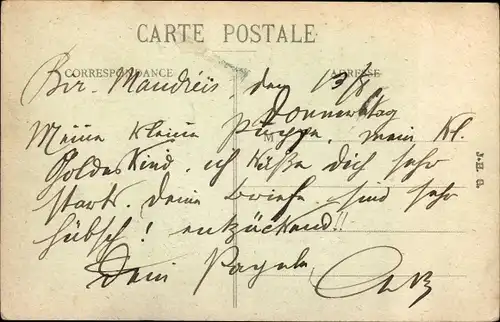 CARTE POSTALE
CORRESPONDANCE
ADRESSE
Bir-Mandreis, den 13/8
Donnerstag
Meine kleine Puppe, mein kl.
Goldeskind, ich küße dich sehr
stark. Deine Briefe sind sehr
hübsch! entzückend!!
Dein
J.H. G.
M